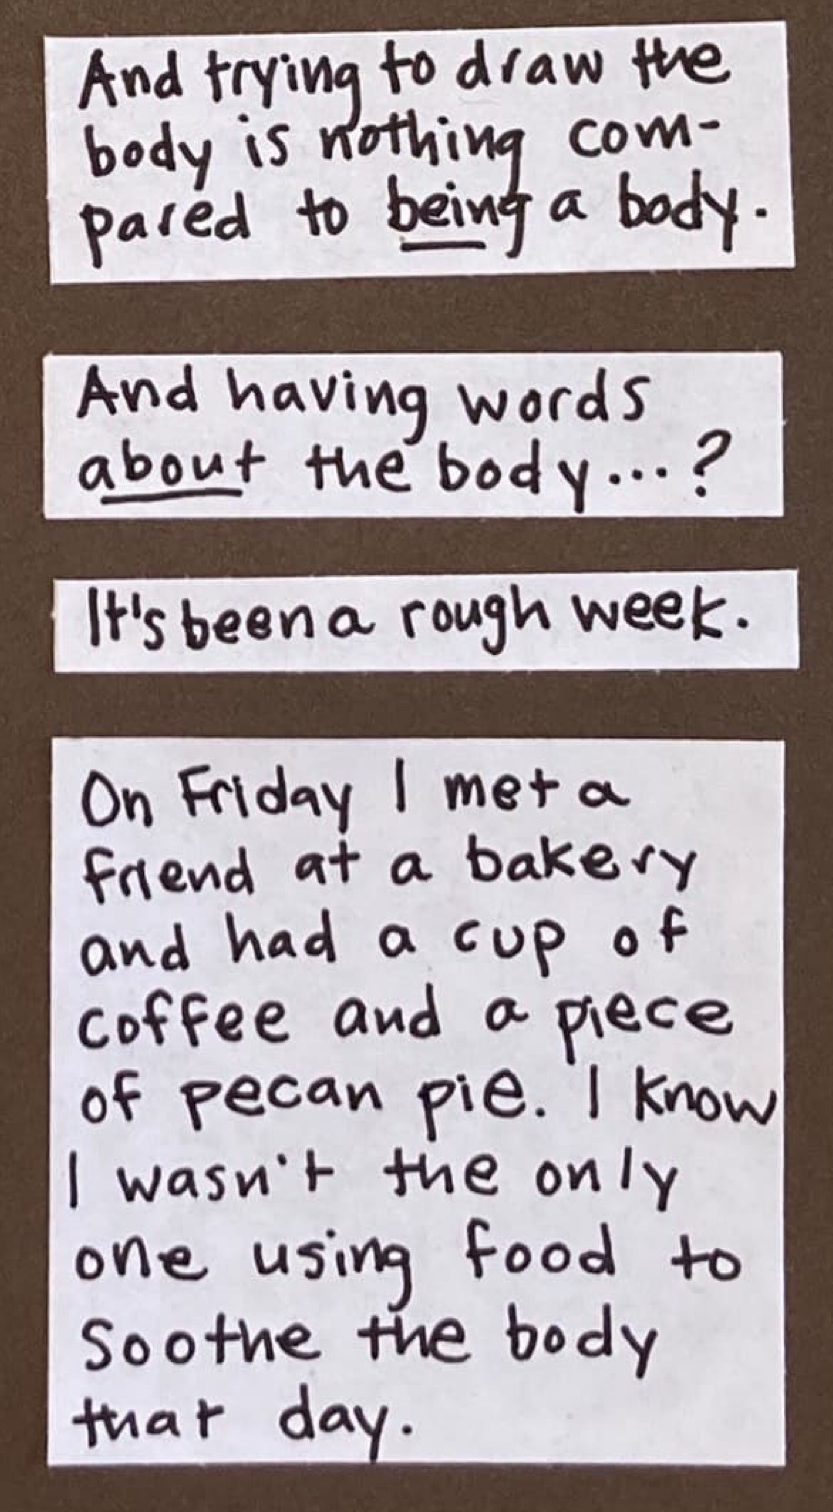 And trying to draw the
body is nothing com-
pared to being a body.
And having words
about the body...?
It's been a rough week.
On Friday I met a
friend at a bakery
and had a cup of
coffee and a piece
of pecan pie. I know
I wasn't the only
one using food to
soothe the body
that day.